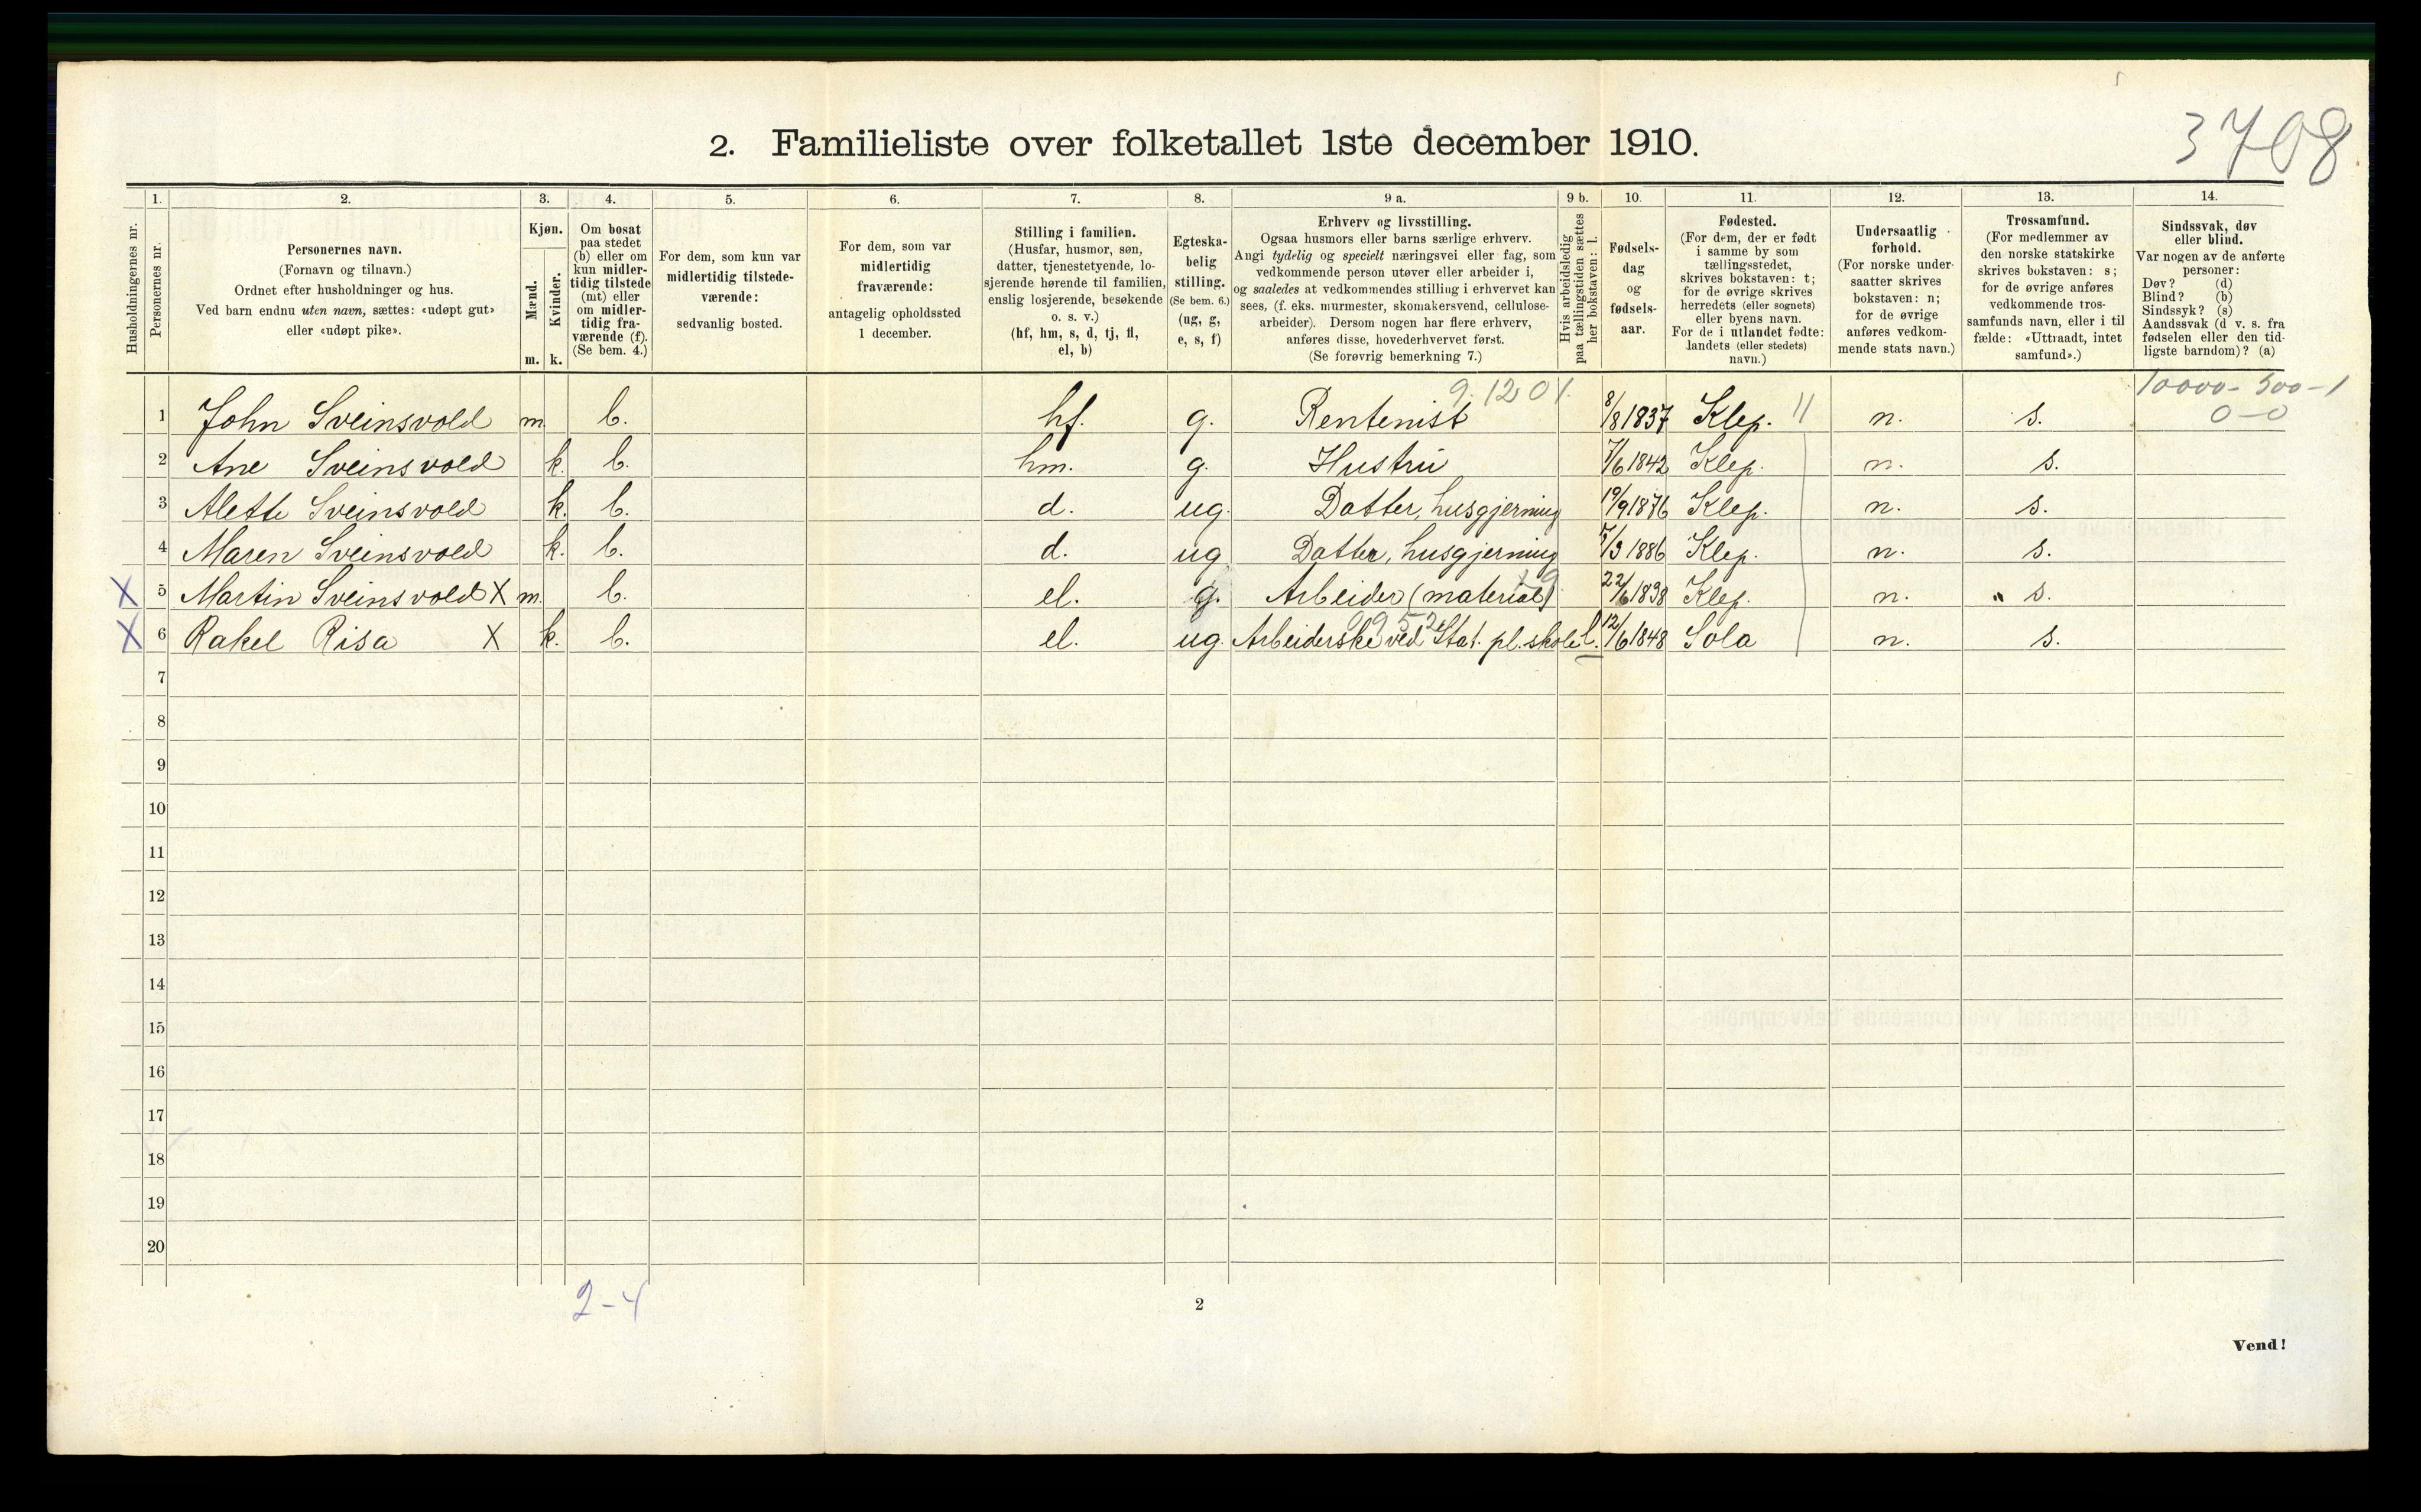 3708
2. Familieliste over folketallet 1ste december 1910.
Husholdningernes nr.
1. Personernes nr.
2. Personernes navn. (Fornavn og tilnavn.) Ordnet efter husholdninger og hus. Ved barn endnu uten navn, sættes: «udøpt gut» eller «udøpt pike».
3. Kjøn. Mænd. m. Kvinder. k.
4. Om bosat paa stedet (b) eller om kun midlertidig tilstede (mt) eller om midlertidig fraværende (f). (Se bem. 4.)
5. For dem, som kun var midlertidig tilstedeværende: sedvanlig bosted.
6. For dem, som var midlertidig fraværende: antagelig opholdssted 1 december.
7. Stilling i familien. (Husfar, husmor, søn, datter, tjenestetyende, losjerende hørende til familien, enslig losjerende, besøkende o. s. v.) (hf, hm, s, d, tj, fl, el, b)
8. Egteskabelig stilling. (Se bem. 6.) (ug, g, e, s, f)
9 a. Erhverv og livsstilling. Ogsaa husmors eller barns særlige erhverv. Angi tydelig og specielt næringsvei eller fag, som vedkommende person utøver eller arbeider i, og saaledes at vedkommendes stilling i erhvervet kan sees, (f. eks. murmester, skomakersvend, cellulosearbeider). Dersom nogen har flere erhverv, anføres disse, hovederhvervet først. (Se forøvrig bemerkning 7.)
9 b. Hvis arbeidsledig paa tællingstiden sættes her bokstaven: l.
10. Fødselsdag og fødselsaar.
11. Fødested. (For dem, der er født i samme by som tællingsstedet, skrives bokstaven: t; for de øvrige skrives herredets (eller sognets) eller byens navn. For de i utlandet fødte: landets (eller stedets) navn.)
12. Undersaatlig forhold. (For norske undersaatter skrives bokstaven: n; for de øvrige anføres vedkommende stats navn.)
13. Trossamfund. (For medlemmer av den norske statskirke skrives bokstaven: s; for de øvrige anføres vedkommende trossamfunds navn, eller i tilfælde: «Uttraadt, intet samfund».)
14. Sindssvak, døv eller blind. Var nogen av de anførte personer: Døv? (d) Blind? (b) Sindssyk? (s) Aandssvak (d v. s. fra fødselen eller den tidligste barndom)? (a)
9.1201. 10000-500-1
1 John Sveinsvold m b. hf. g. Rentenist 8/8 1837 Klep. 11 n. s. 0-0
2 Ane Sveinsvold k. b. hm. g. Hustru 7/6 1842 Klep. n. s.
3 Alette Sveinsvold k. b. d. ug. Datter, husgjerning 19/9 1876 Klep. n. s.
4 Maren Sveinsvold k. b. d. ug. Datter, husgjerning 7/3 1886 Klep. n. s.
X 5 Martin Sveinsvold X m. b. el. g. Arbeider (material) 22/6 1838 Klep. n. " s.
X 6 Rakel Risa X k. b. el. ug. Arbeiderske ved Stat. pl. skole l. 12/6 1848 Sola n. s.
7
8
9
10
11
12
13
14
15
16
17
18
19
20
2-4
2
Vend!